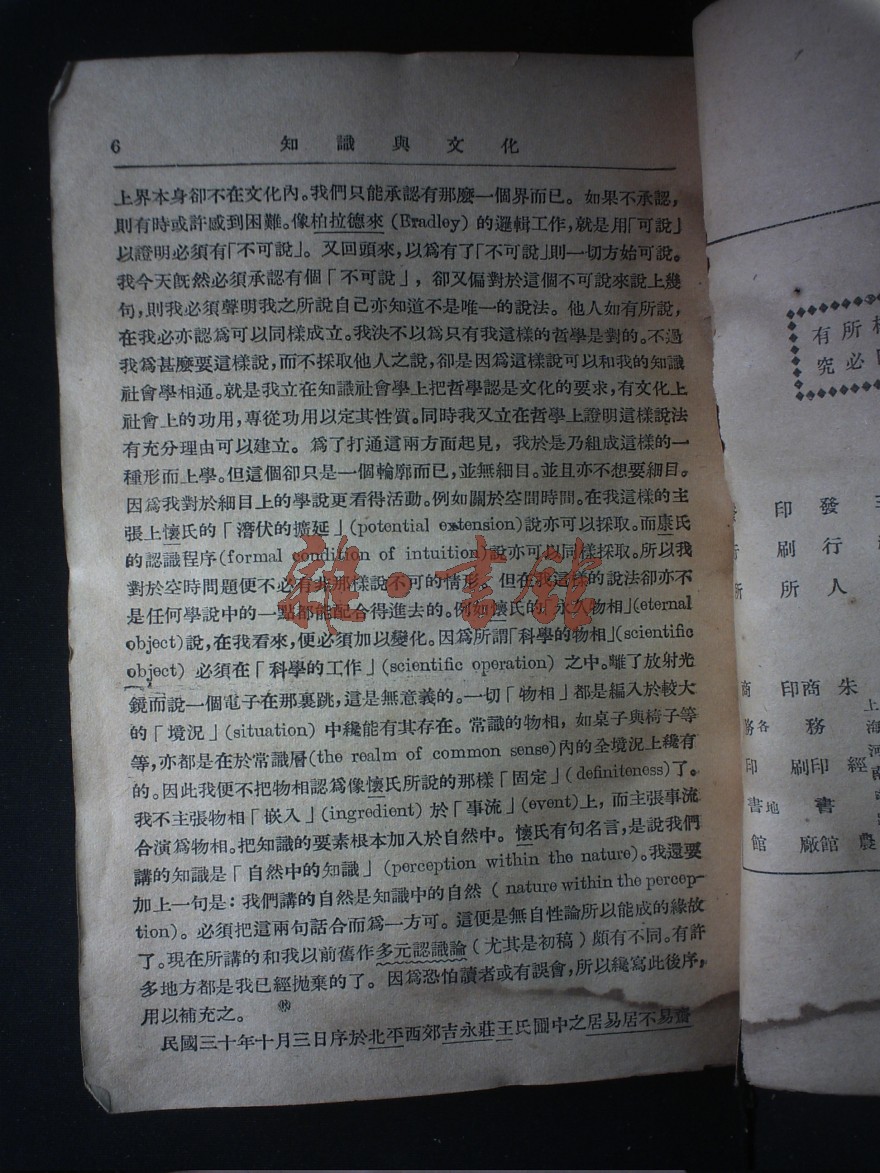 6
知識與文化
上界本身卻不在文化內。我們只能承認有那麼一個界而已。如果不承認,
則有時或許感到困難。像柏拉德來 (Bradley) 的邏輯工作,就是用「可說」
以證明必須有「不可說」。又回頭來,以爲有了「不可說」則一切方始可說。
我今天旣然必須承認有個「不可說」,卻又偏對於這個不可說來說上幾
句,則我必須聲明我之所說自己亦知道不是唯一的說法。他人如有所說,
在我必亦認爲可以同樣成立。我決不以爲只有我這樣的哲學是對的。不過
我爲甚麼要這樣說,而不採取他人之說,卻是因爲這樣說可以和我的知識
社會學相通。就是我立在知識社會學上把哲學認是文化的要求,有文化上
社會上的功用,專從功用以定其性質。同時我又立在哲學上證明這樣說法
有充分理由可以建立。爲了打通這兩方面起見,我於是乃組成這樣的一
種形而上學。但這個卻只是一個輪廓而已,並無細目。並且亦不想要細目。
因爲我對於細目上的學說更看得活動。例如關於空間時間。在我這樣的主
張上懷氏的「潛伏的擴延」(potential extension)說亦可以採取。而康氏
的認識程序(formal condition of intuition)說亦可以同樣採取。所以我
對於空時問題便不必有非那樣說不可的情形。但在我這樣的說法卻亦不
是任何學說中的一點都能配合得進去的。例如懷氏的「永久物相」(eternal
object)說,在我看來,便必須加以變化。因爲所謂「科學的物相」(scientific
object) 必須在「科學的工作」(scientific operation) 之中。離了放射光
鏡而說一個電子在那裏跳,這是無意義的。一切「物相」都是編入於較大
的「境況」(situation) 中纔能有其存在。常識的物相,如桌子與椅子等
等,亦都是在於常識層(the realm of common sense)內的全境況上纔有
的。因此我便不把物相認爲像懷氏所說的那樣「固定」(definiteness)了。
我不主張物相「嵌入」(ingredient) 於「事流」(event)上,而主張事流
合演爲物相。把知識的要素根本加入於自然中。懷氏有句名言,是說我們
講的知識是「自然中的知識」(perception within the nature)。我還要
加上一句是:我們講的自然是知識中的自然 (nature within the percep-
tion)。必須把這兩句話合而爲一方可。這便是無自性論所以能成的緣故
了。現在所講的和我以前舊作多元認識論(尤其是初稿)頗有不同。有許
多地方都是我已經拋棄的了。因爲恐怕讀者或有誤會,所以纔寫此後序,
用以補充之。
民國三十年十月三日序於北平西郊吉永莊王氏園中之居易居不易齋
雜·書館
所有
必究
發行人
印刷所
朱
商務印書館
上海河南
經
農
印刷廠
各地